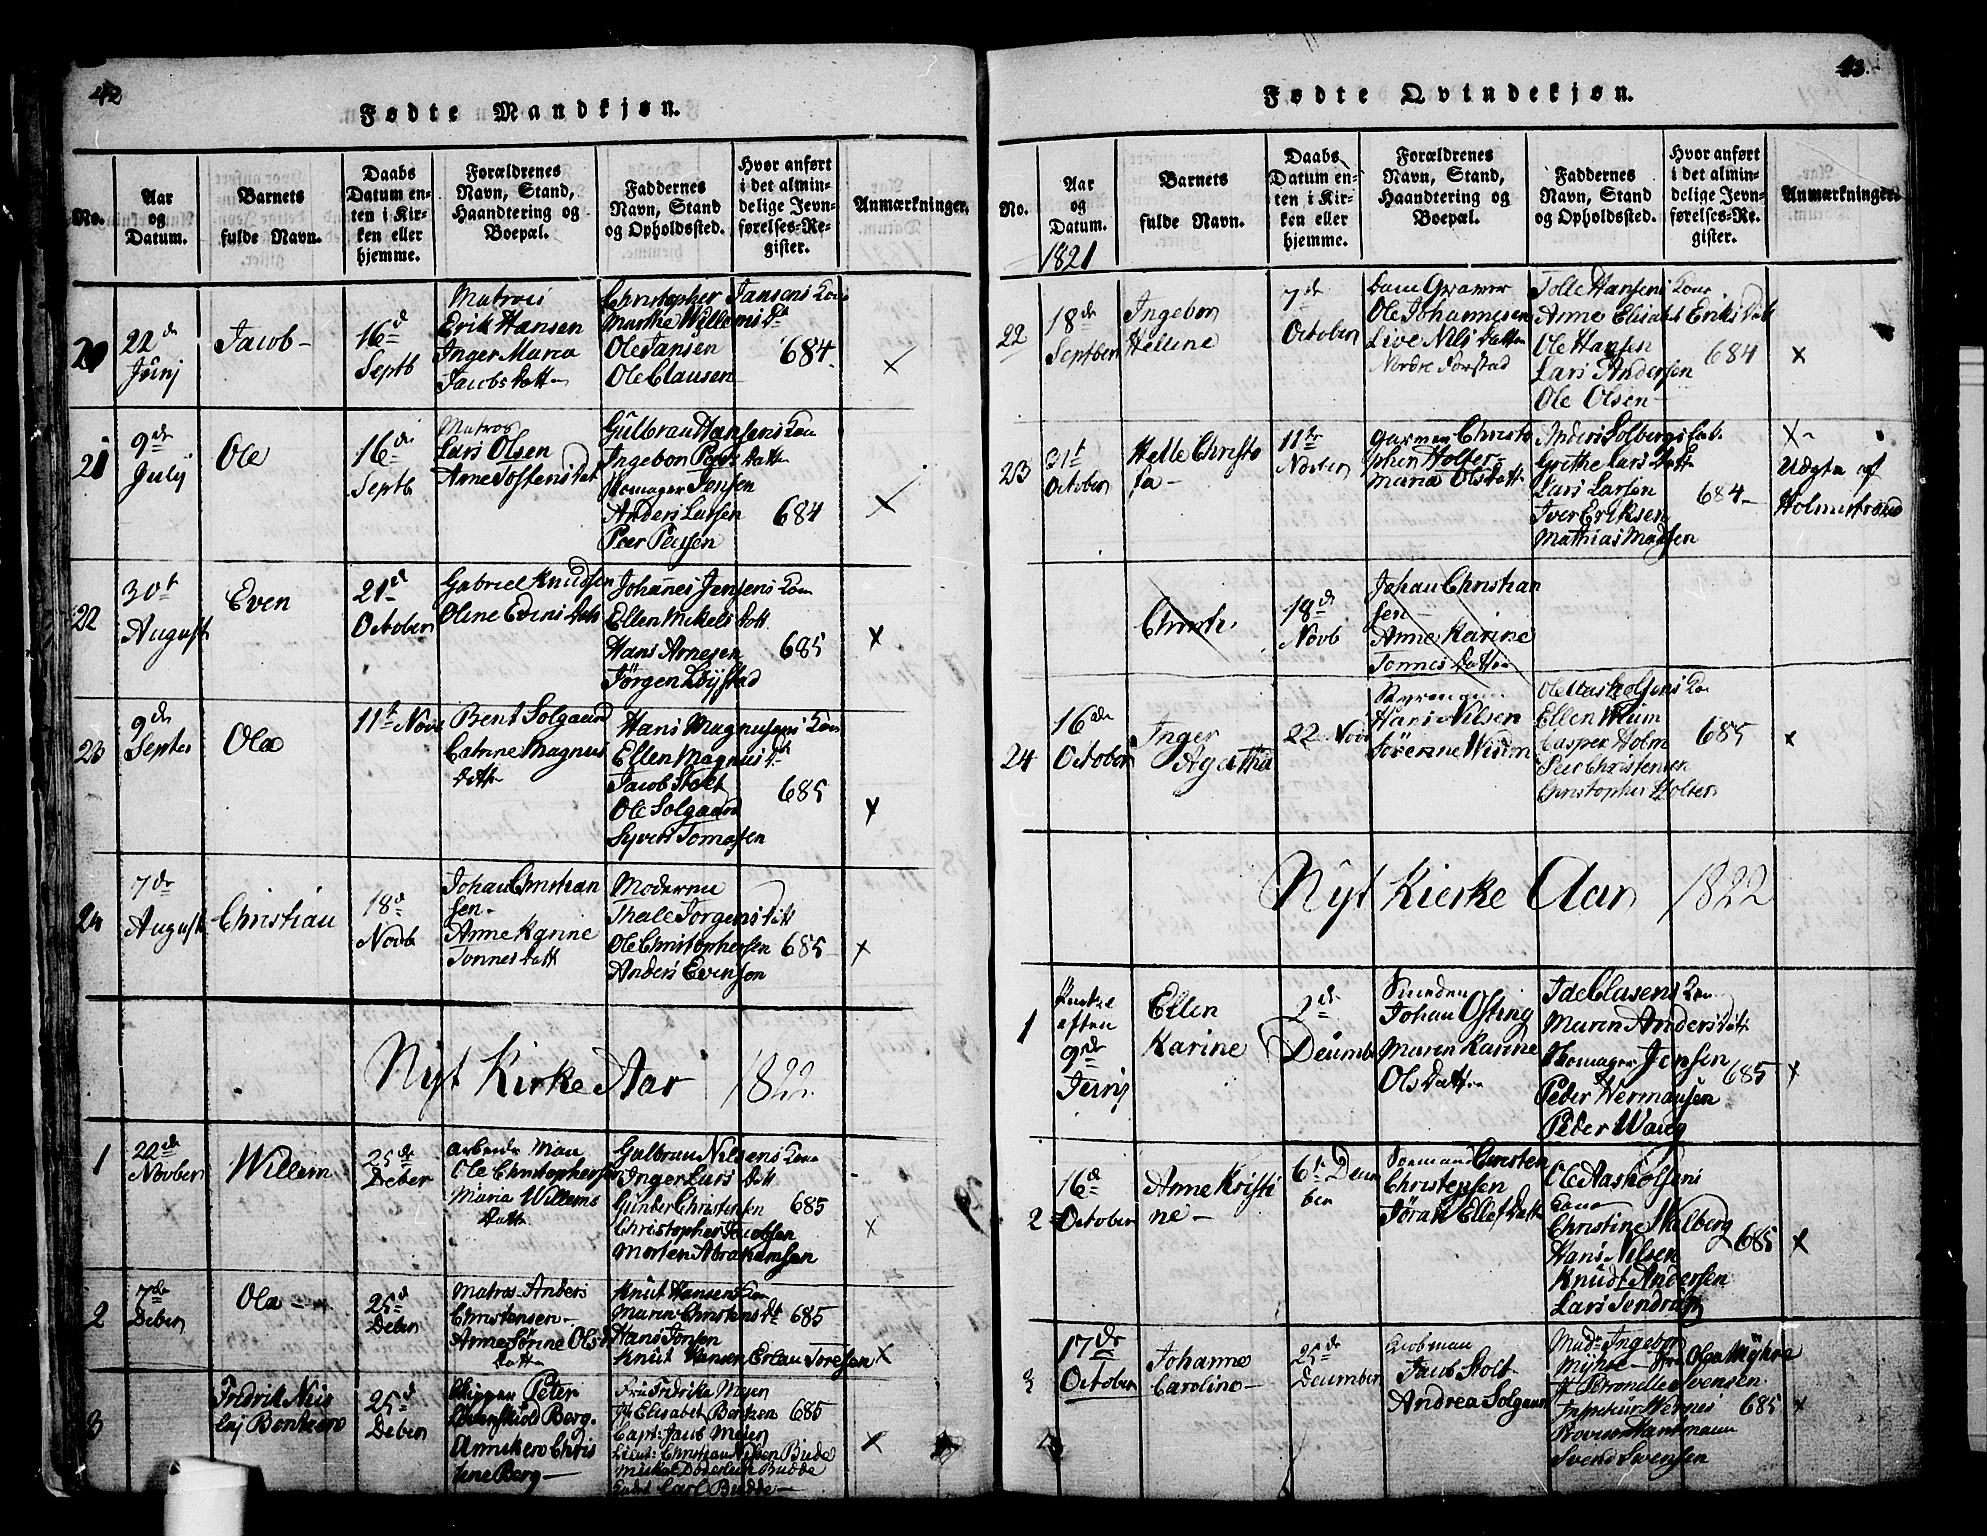 42
Fødte Mandkjøn.
No.
Aar
og
Datum.
Barnets
fulde Navn.
Daabs
Datum en-
ten i Kir-
ken eller
hjemme.
Forældrenes
Navn, Stand,
Haandtering og
Boepæl.
Faddernes
Navn, Stand
og Opholdssted.
Hvor anført
i det almin-
delige Jevn-
førelses-Re-
gister.
Anmærkninger.
20
22de
Junj
Jacob
16d
Septb
Matros
Erik Hansen
Inger Maria
Jacobs Datter
Christopher Jansens Kone
Marthe Willems Dt
Ole Jansen
Ole Clausen
684
x
21
9de
Julij
Ole
16de
Septb
Matros
Lars Olsen
Anne Tostens Dat
Gulbran Hansens Kone
Ingebor Peers Datter
Skomager Jensen
Anders Larsen
Peer Persen
684
x
22
30t
August
Even
21d
October
Gabriel Knudsen
Oline Evens Datt
Johanes Jensens Kone
Ellen Mikels Datt
Hans Arnesen
Jörgen Löystad
685
x
23
9de
Septer
Ole
11t Novb
Bent Solgaard
Catrine Magnus
Datter
Hans Magnusens Kone
Ellen Magnus Dt
Jacob Stolt
Ole Solgaard
Syvert Tomasen
685
x
24
7de
August
Christian
18d
Novb
Johan Christian
sen
Anne Karine
Tonnes Datt
Moderen
Thale Jorgens Datt
Ole Christophersen
Anders Evenson
685
x
Nyt Kirke Aar 1822
1
22de
Novber
Willem
25de
Deber
Arbeids Man
Ole Christophersen
Maria Willems
Datter
Gulbran Nilsens Kone
Inger Lars Datt
Gunder Christensen
Christopher Jacobsen
Morten Abrahamsen
685
x
2
7de
Deber
Ole
25d
Deber
Matros Anders
Christensen
Anne Sörine Ols
Datter
Knut Hansens Kone
Maren Christens Dt
Hans Jonsen
Knut Hansen Erlau Toresen
685
x
3
Fridrik Nico
laj Bentzen
25d
Deber
Skipper Peter
Berg.
Chris
tine Berg
Fru Fridrika Meyer
Jf Elisabet Bentzen
Capt: Jacob Meier
Lieut: Christian Nilsen Budde
Mickal Döderlein Budde
Cadet Carl Budde
685
x
43.
Fødte Qvindekjøn.
No.
Aar
og
Datum.
1821
Barnets
fulde Navn.
Daabs
Datum en-
ten i Kir-
ken eller
hjemme.
Forældrenes
Navn, Stand,
Haandtering og
Boepæl.
Faddernes
Navn, Stand
og Opholdssted.
Hvor anført
i det almin-
delige Jevn-
førelses-Re-
gister.
Anmærkninger.
22
18de
Septber
Ingebor
Helline
7de
October
Ole Johannesen
Live Nils Datter
Nordre Forstad
Tolle Hansens Kone
Anne Elisabet Eriks Datt
Ole Hansen
Lars Andersen
Ole Olsen
684
x
23
31t
October
Helle Christo
fa
11te
Novber
Garmer Christo
pher Holter
Maria Ols Datt
Anders Solbergs
Grethe Lars Datt
Lars Larsen
Iver Eriksen
Mathias Madsen
684
x
Udgta af
Holmestrand
Christi
18de
Novb
Johan Christian
sen
Anne Karine
Tonnes Datter
24
16de
October
Inger
Agatha
22 Novb
Hans Nilsen
Sörenne Wiim
Ole Aasholsens Kone
Ellen Wiim
Casper Holm
Peer Christensen
Christopher Holter
685
x
Nyt Kierke Aar 1822
1
efter
9de
Junij
Ellen
Karine
2d
Deumber
Smeden
Johan Osting
Maren Karine
Ols Datter
Ide Clasens Kone
Maren Anders Datt
Skomager Jensen
Peder Hermansen
Peder Waag
685
x
2
16d
October
Anne Kristi
ne
6t Deum
ber
Sormand Christen
Christensen
Jöran Ellef Datt
Ole Aasholsens
Kone
Christine Walberg
Hans Nilsen
Knudt Andersen
Lars Sondrup
685
x
3
17de
October
Johanne
Caroline
25de
Deumber
Kiobman
Jacob Stolt
Andrea Solgaard
Mad: Ingebor
Myhre Fru Olga Myhre
Jf Petronelle Svensen
Inspektur Wernes
Provisor Hartmann
Svend Svensen
685
x